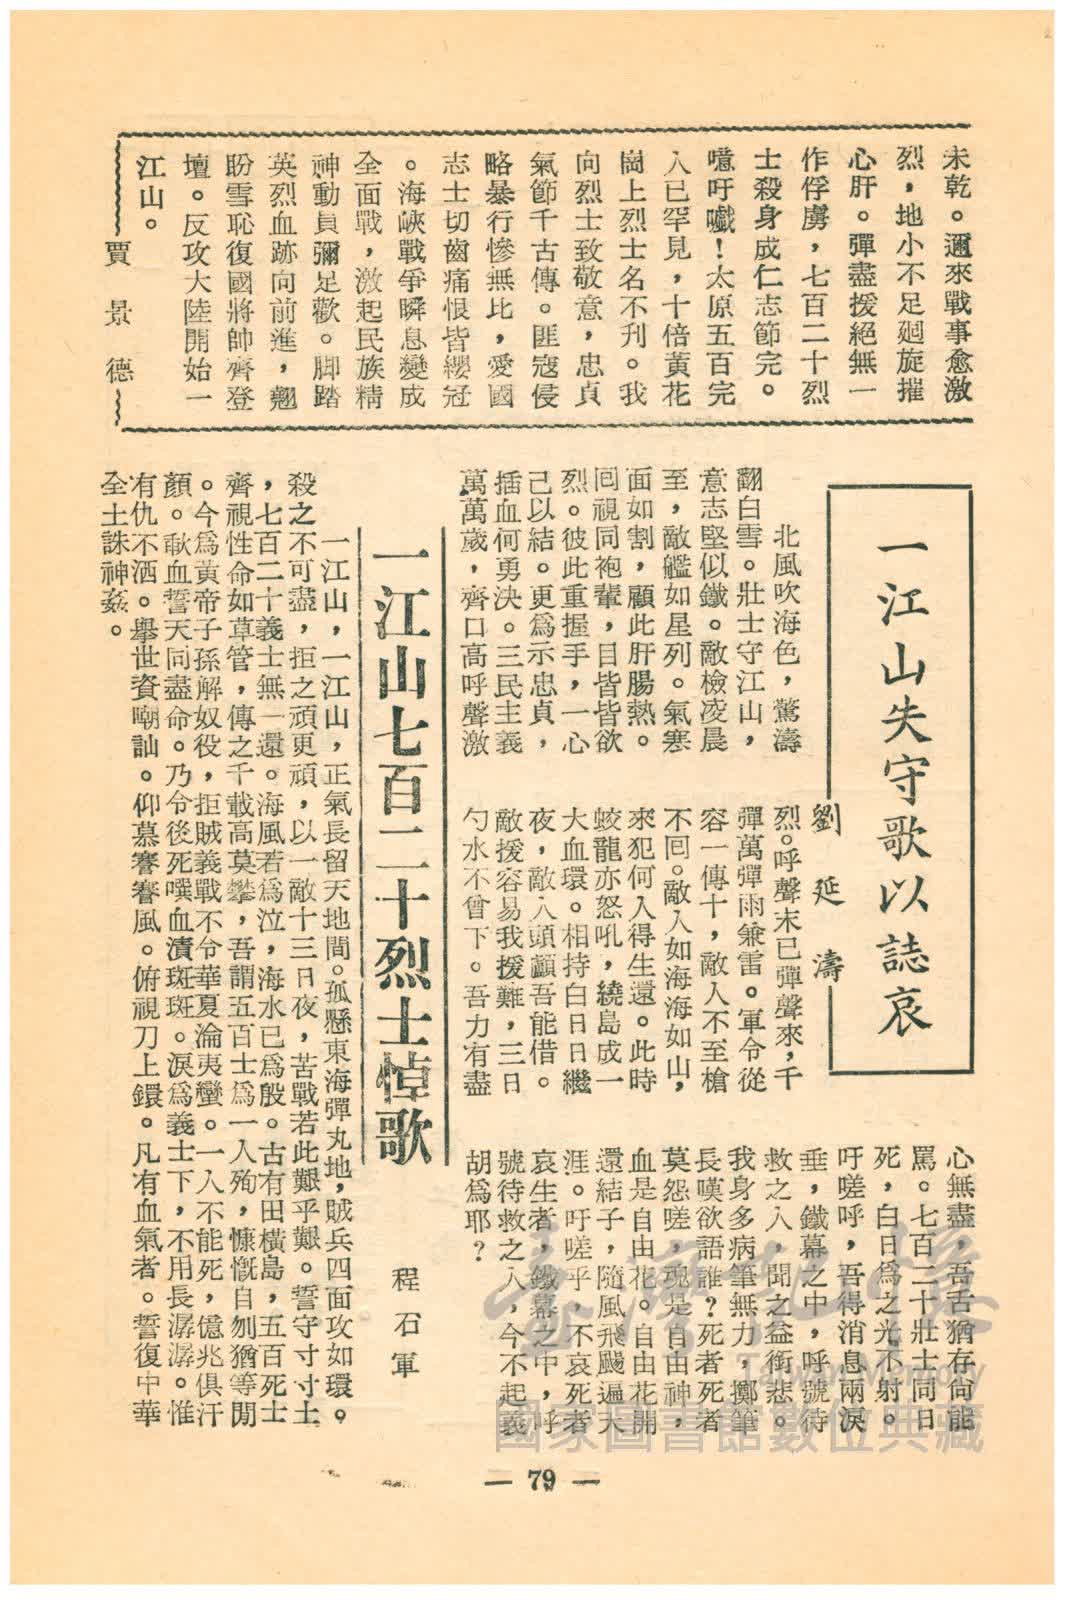 未乾。邇來戰事愈激
烈，地小不足廻旋摧
心肝。彈盡援絕無一
作俘虜，七百二十烈
士殺身成仁志節完。
噫吁嚱！太原五百完
人已罕見，十倍黃花
崗上烈士名不刊。我
向烈士致敬意，忠貞
氣節千古傳。匪寇侵
略暴行慘無比，愛國
志士切齒痛恨皆纓冠
。海峽戰爭瞬息變成
全面戰，激起民族精
神動員彌足歡。脚踏
英烈血跡向前進，翹
盼雪恥復國將帥齊登
壇。反攻大陸開始一
江山。
賈景德
一江山失守歌以誌哀
劉延濤
北風吹海色，驚濤
翻白雪。壯士守江山，
意志堅似鐵。敵檢凌晨
至，敵艦如星列。氣寒
面如割，顧此肝腸熱。
囘視同袍輩，目眥皆欲
烈。彼此重握手，一心
己以結。更爲示忠貞，
插血何勇決。三民主義
萬萬歲，齊口高呼聲激
烈。呼聲未已彈聲來，千
彈萬彈雨兼雷。軍令從
容一傳十，敵人不至槍
不囘。敵人如海海如山，
來犯何人得生還。此時
蛟龍亦怒吼，繞島成一
大血環。相持白日日繼
夜，敵人頭顱吾能借。
敵援容易我援難，三日
勺水不曾下。吾力有盡
心無盡，吾舌猶存尙能
罵。七百二十壯士同日
死，白日爲之光不射。
吁嗟呼，吾得消息兩淚
垂，鐵幕之中，呼號待
救之人，聞之益銜悲。
我身多病筆無力，擲筆
長嘆欲語誰？死者死者
莫怨嗟，魂是自由神，
血是自由花。自由花開
還結子，隨風飛颺遍天
涯。吁嗟乎，不哀死者
哀生者，鐵幕之中，呼
號待救之人，今不起義
胡爲耶？
一江山七百二十烈士悼歌
程石軍
一江山，一江山，正氣長留天地間。孤懸東海彈丸地，賊兵四面攻如環。
殺之不可盡，拒之頑更頑，以一敵十三日夜，苦戰若此艱乎艱。誓守寸寸土
，七百二十義士無一還。海風若爲泣，海水已爲殷。古有田橫島，五百死士
齊視性命如草管，傳之千載高莫攀，吾謂五百士爲一人殉，慷慨自刎猶等閒
。今爲黃帝子孫解奴役，拒賊義戰不令華夏淪夷蠻。一人不能死，億兆俱汗
顏。歃血誓天同盡命。乃令後死噀血漬斑斑。淚爲義士下，不用長潺潺。惟
有仇不洒。擧世資嘲訕。仰慕謇謇風。俯視刀上鐶。凡有血氣者。誓復中華
全土誅神姦。
— 79 —
臺灣記憶
Taiwan Memory
國家圖書館數位典藏